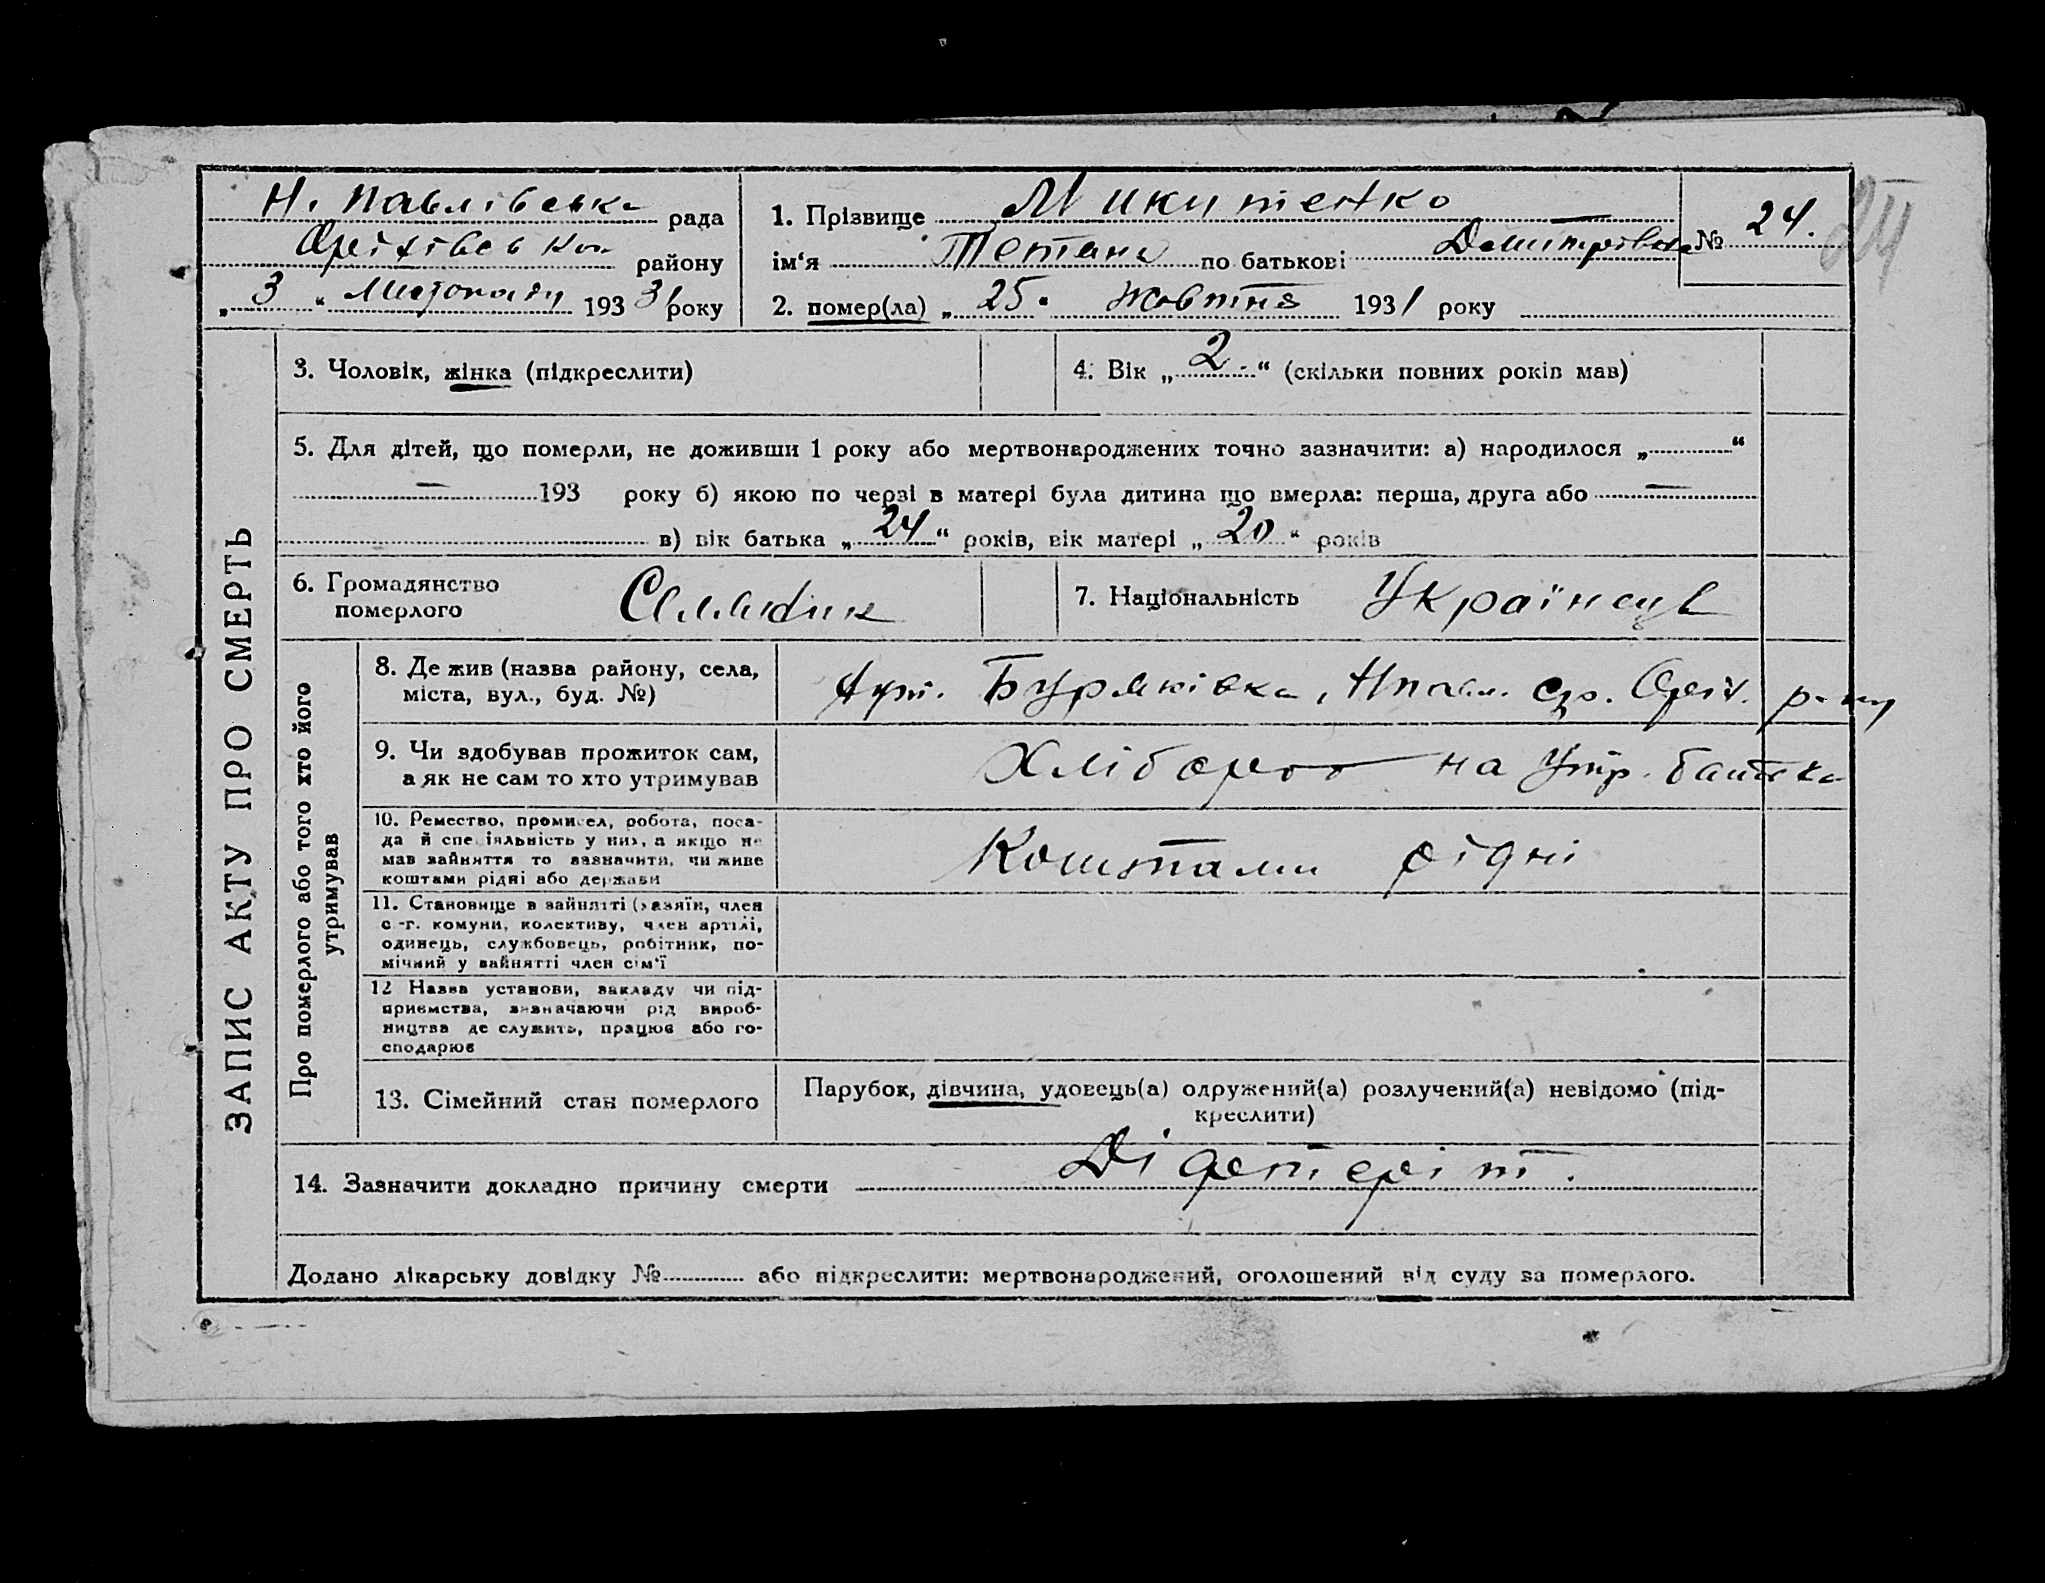 Н. Павлівська рада
Оріхівського району
„3“ Листопаду 1931 року
1. Прізвище Микитенко
ім‘я Тетяна по батькові Дмитрівна
№ 24.
24
2. помер(ла) „25“ жовтня 1931 року
ЗАПИС АКТУ ПРО СМЕРТЬ
3. Чоловік, жінка (підкреслити)
4. Вік „2.“ (скільки повних років мав)
5. Для дітей, що померли, не доживши 1 року або мертвонароджених точно зазначити: а) народилося „ “
— 193 року б) якою по черзі в матері була дитина що вмерла: перша, друга або —
в) вік батька „24“ років, вік матері „20“ років
6. Громадянство
померлого
7. Національність Українец
Про померлого або того хто його
утримував
8. Де жив (назва району, села,
міста, вул., буд. №)
Бурмківка, Нпавл. с/р. Оріх. р-ну
9. Чи здобував прожиток сам,
а як не сам то хто утримував
Хлібороб на утр. батька
10. Ремество, промисел, робота, поса-
да й спеціяльність у них, а якщо не
мав зайняття то зазначити, чи живе
коштами рідні або держави
Коштами рідні
11. Становище в зайнятті (хазяїн, член
с.-г. комуни, колективу, член артілі,
одинець, службовець, робітник, по-
мічний у зайнятті член сім‘ї
12 Назва установи, закладу чи під-
приємства, зазначаючи рід вироб-
ництва де служить, працює або го-
сподарює
13. Сімейний стан померлого
Парубок, дівчина, удовець(а) одружений(а) розлучений(а) невідомо (під-
креслити)
14. Зазначити докладно причину смерти Діфтеріт.
Додано лікарську довідку № або підкреслити: мертвонароджений, оголошений від суду за померлого.